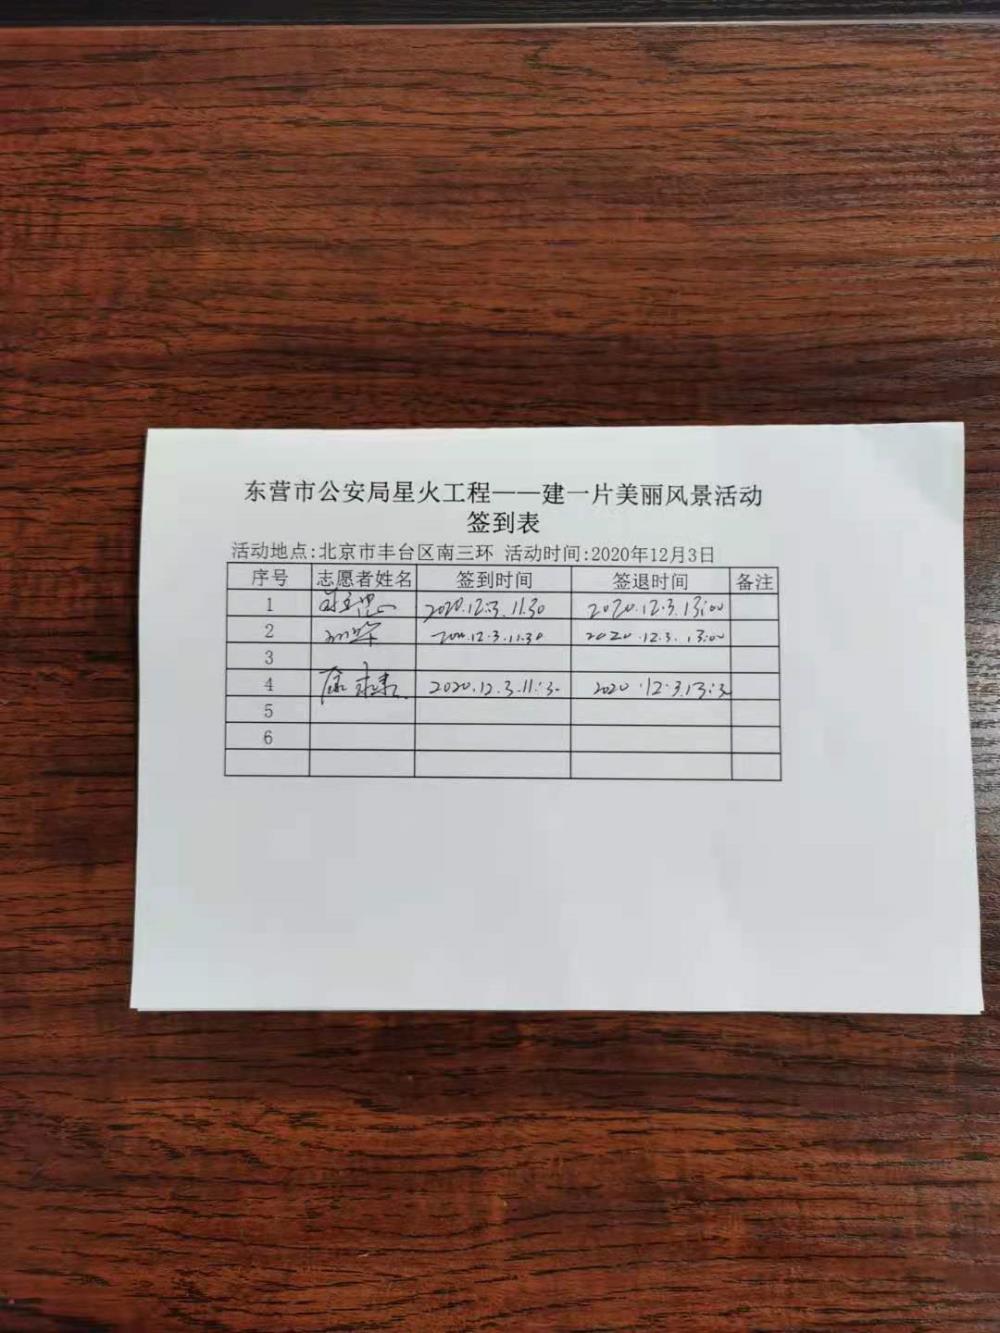 东营市公安局星火工程——建一片美丽风景活动
签到表
活动地点:北京市丰台区南三环 活动时间:2020年12月3日
序号 志愿者姓名 签到时间 签退时间 备注
1 2020.12.3.11.30 2020.12.3.13:00
2 12.3.11.30 2020.12.3.13:00
3
4 2020.12.3.11:3 2020.12.3.13:3
5
6